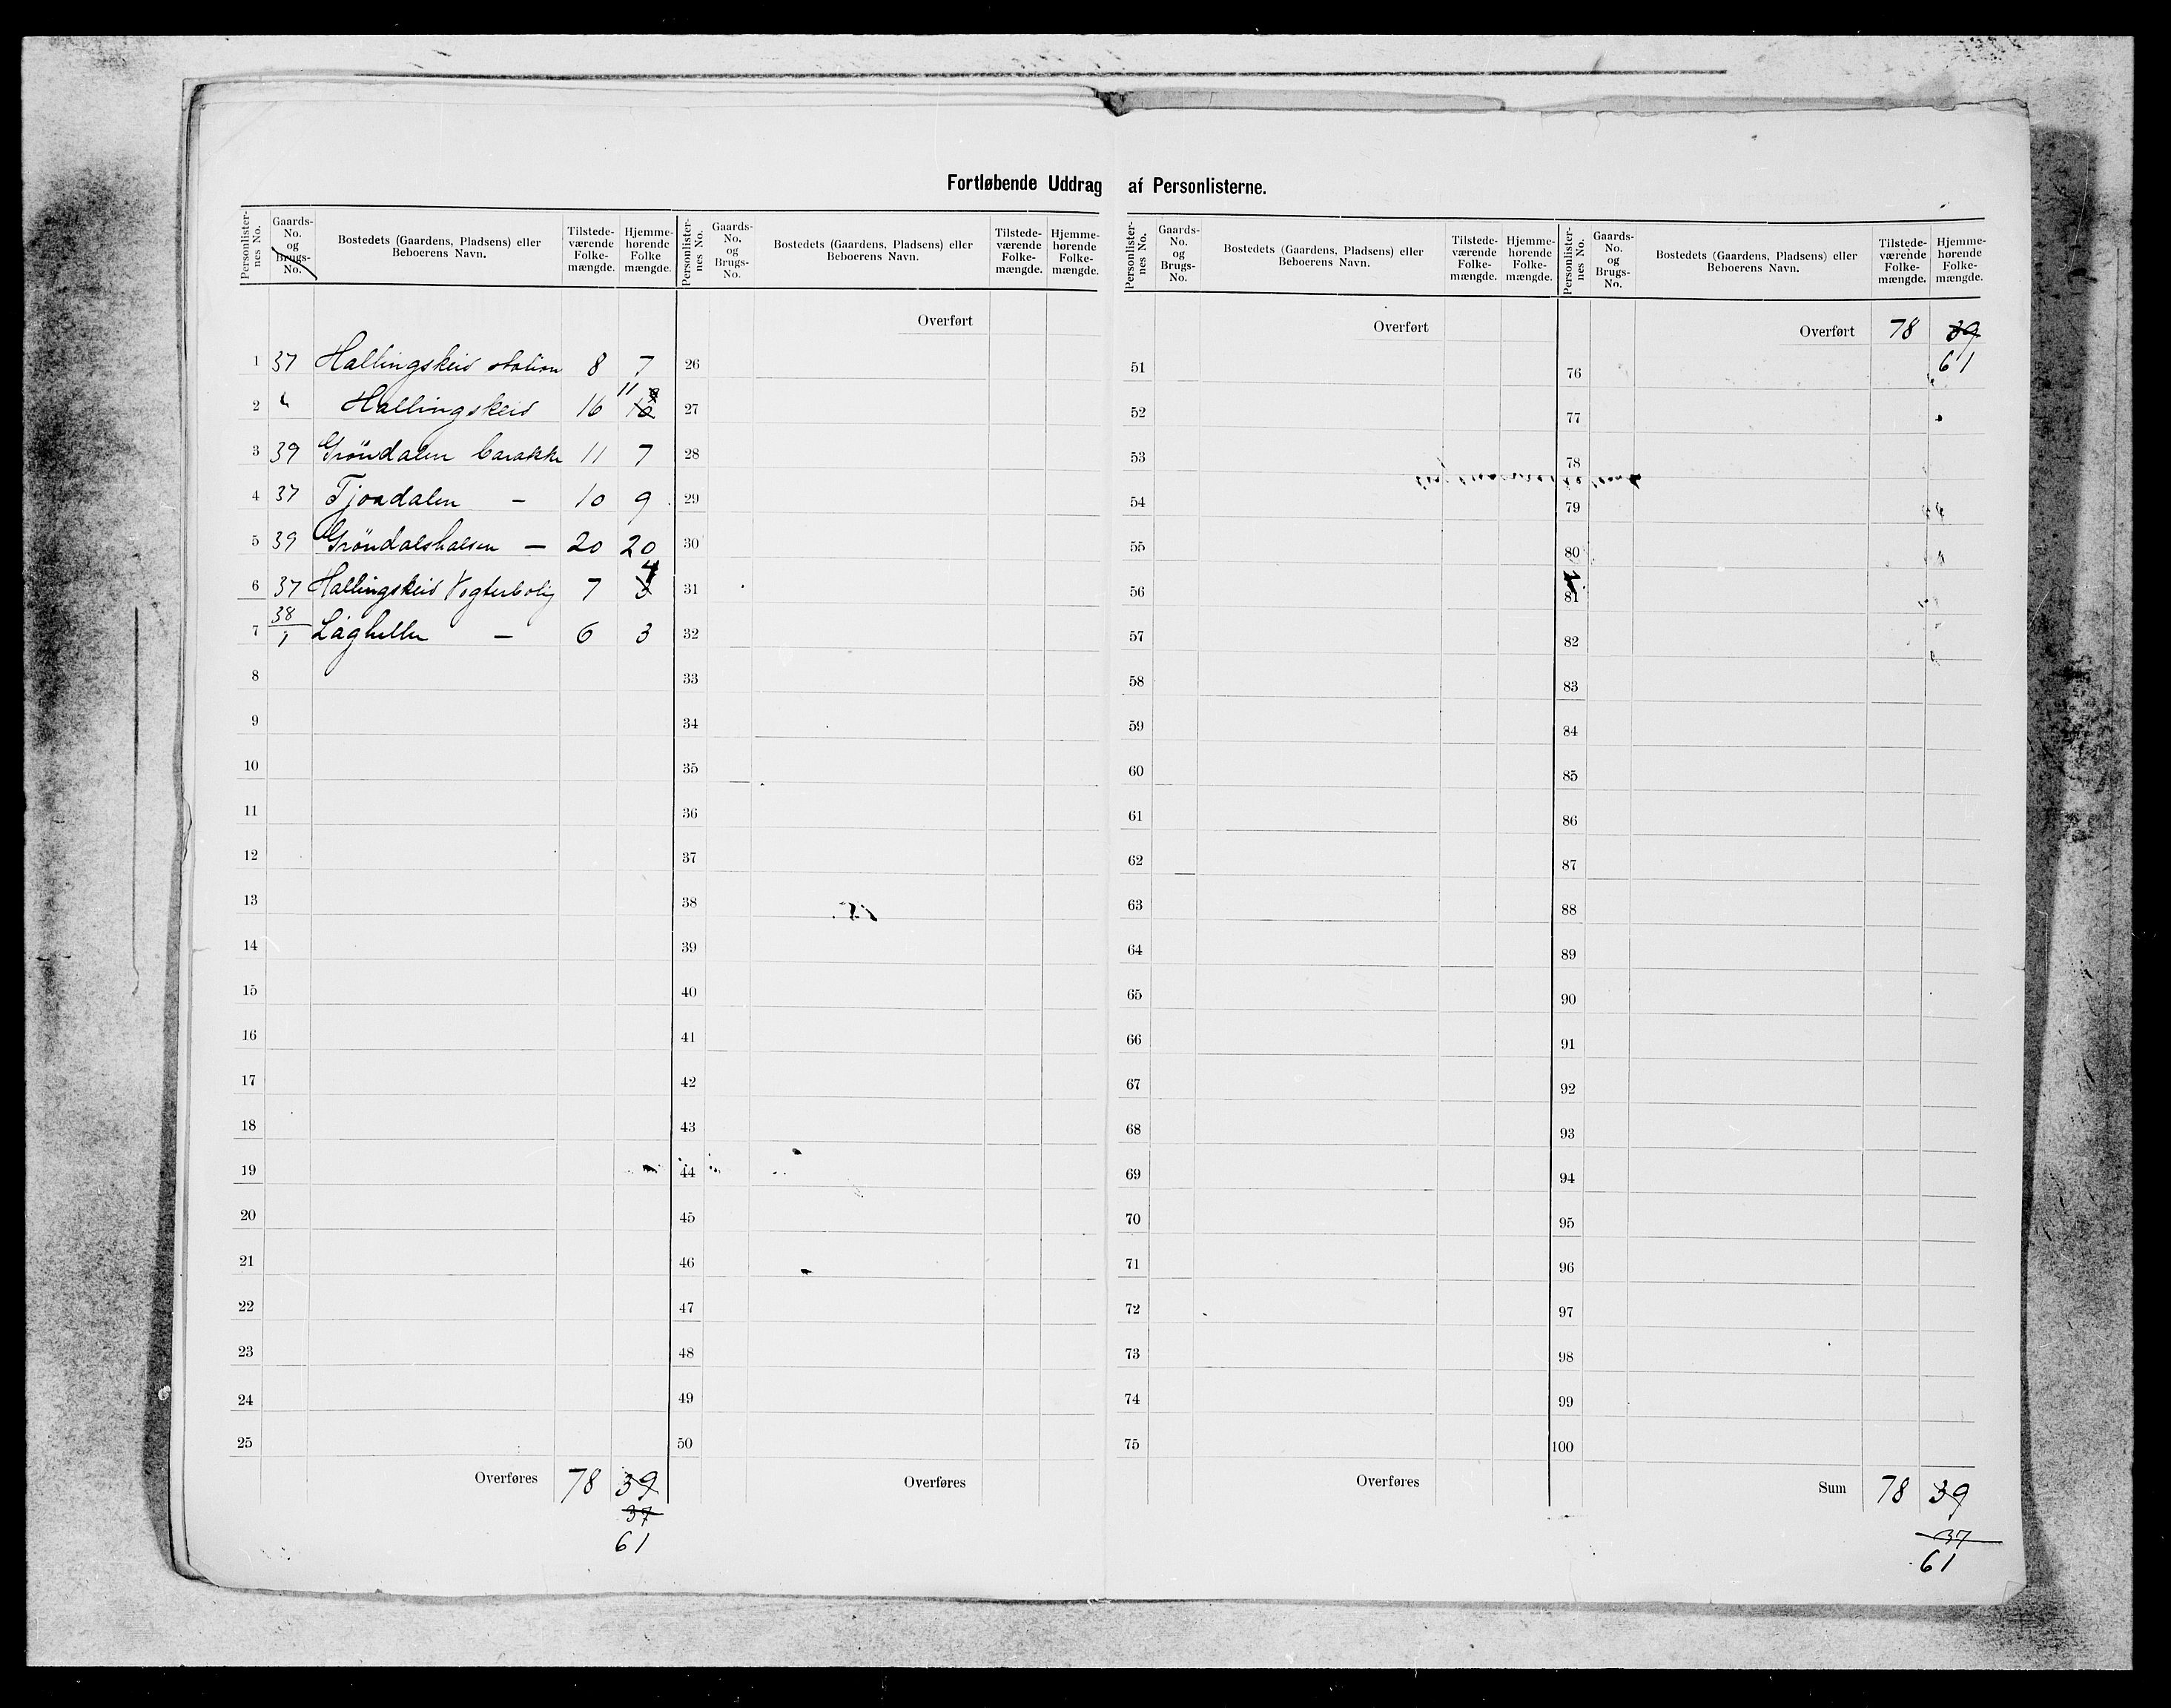 Fortløbende Uddrag af Personlisterne.
Personlister-nes No. Gaards-No. og Brugs-No. Bostedets (Gaardens, Pladsens) eller Beboerens Navn. Tilstede-værende Folke-mængde. Hjemme-hørende Folke mængde.
1 37 Hallingskeid station 8 7
2 " Hallingskeid 16 11
3 39 Gröndalen barakke 11 7
4 37 Tjoadalen — 10 9
5 39 Gröndalshalsen — 20 20
6 37 Hallingskeid Vogterbolig 7 4
7 38/1 Lågheller — 6 3
8
9
10
11
12
13
14
15
16
17
18
19
20
21
22
23
24
25
Overføres 78 39
37
61
Personlister-nes No. Gaards-No. og Brugs-No. Bostedets (Gaardens, Pladsens) eller Beboerens Navn. Tilstede-værende Folke-mængde. Hjemme-hørende Folke-mængde.
Overført
26
27
28
29
30
31
32
33
34
35
36
37
38
39
40
41
42
43
44
45
46
47
48
49
50
Overføres
Personlister-nes No. Gaards-No. og Brugs-No. Bostedets (Gaardens, Pladsens) eller Beboerens Navn. Tilstede-værende Folke-mængde. Hjemme-hørende Folke-mængde.
Overført
51
52
53
54
55
56
57
58
59
60
61
62
63
64
65
66
67
68
69
70
71
72
73
74
75
Overføres
Personlister-nes No. Gaards-No. og Brugs-No. Bostedets (Gaardens, Pladsens) eller Beboerens Navn. Tilstede-værende Folke-mængde. Hjemme-hørende Folke-mængde.
Overført 78 39
61
76
77
78
79
80
81
82
83
84
85
86
87
88
89
90
91
92
93
94
95
96
97
98
99
100
Sum 78 39
37
61